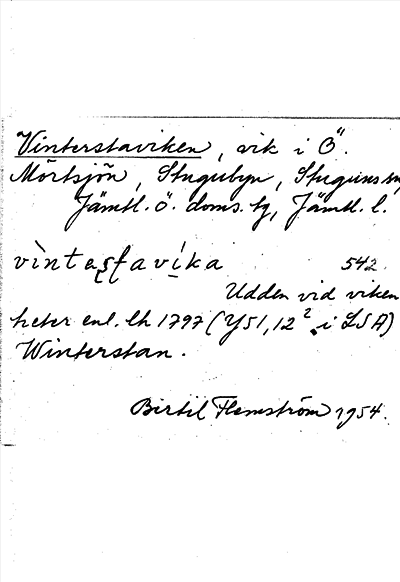 Vinterstaviken, vik i Ö.
Mörtsjön, Stugubyn, Stuguns sn,
Jämtl. ö. doms. tg, Jämtl. l.
542.
Udden vid viken
heter enl. lh 1797 (Y51, 12² i LSA)
Winterstan.
Bertil Flemström 1954.